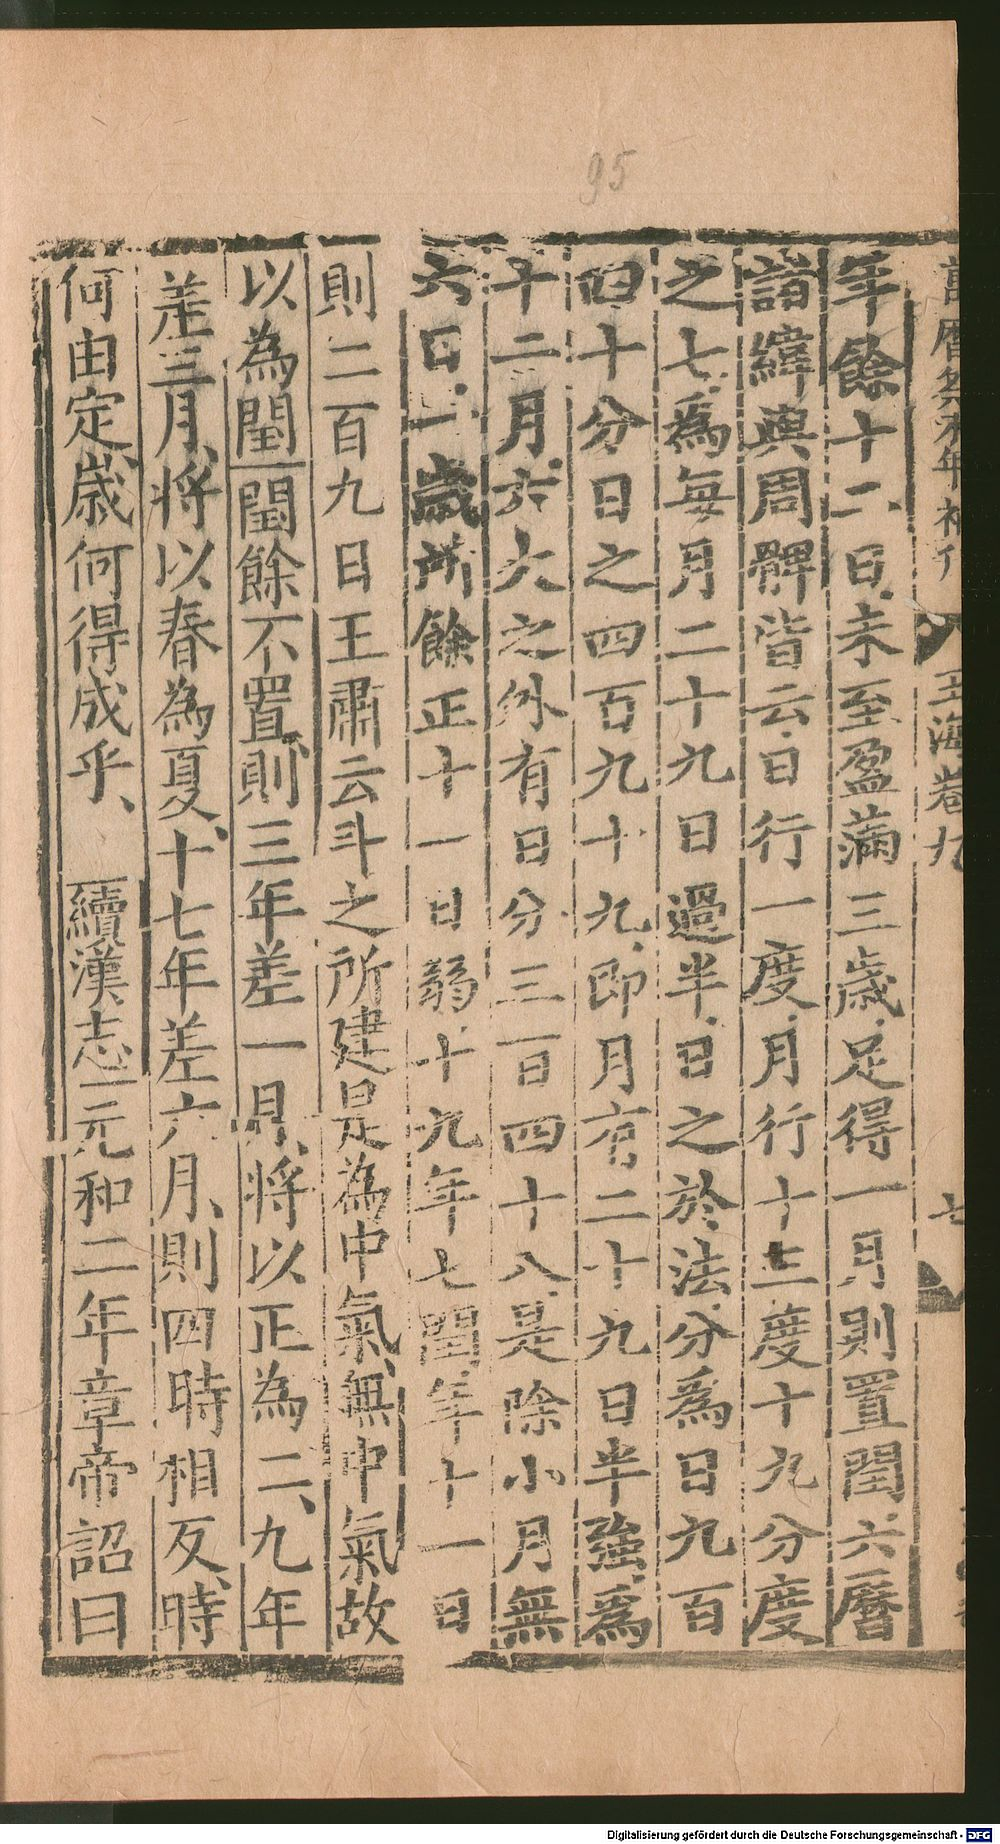 95
玉海卷九
年餘十二日未至盈滿三歲足得一月則置閏六曆
諸緯與周髀皆云日行一度月行十三度十九分度
之七爲每月二十九日過半日之於法分爲日九百
四十分日之四百九十九即月有二十九日半強爲
十二月六六之外有日分三百四十八是除小月無
六日一歲所餘正十一日弱十九年七閏年十一日
則二百九日王肅云斗之所建是為中氣無中氣故
以為閏閏餘不置則三年差一月將以正為二九年
差三月將以春為夏十七年差六月則四時相反時
何由定歲何得成乎續漢志元和二年章帝詔曰
Digitalisierung gefördert durch die Deutsche Forschungsgemeinschaft - DFG